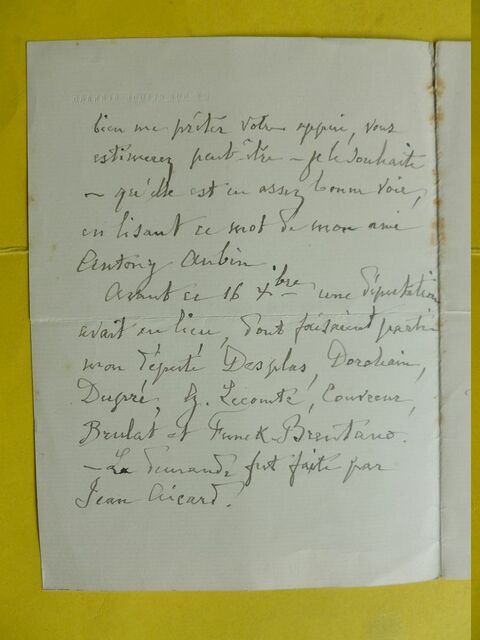 bien me prêter votre appui, vous
estimerez peut-être – je le souhaite
– qu'elle est en assez bonne voie,
en lisant ce mot de mon ami
Antony Aubin.
Avant ce 16 Xbre, une députation
avait eu lieu, dont faisaient partie
mon député Desplas, Dorchain,
Dupré, G. Lecomte, Couvreur,
Brulat et Funck-Brentano.
– La demande fut faite par
Jean Aicard.